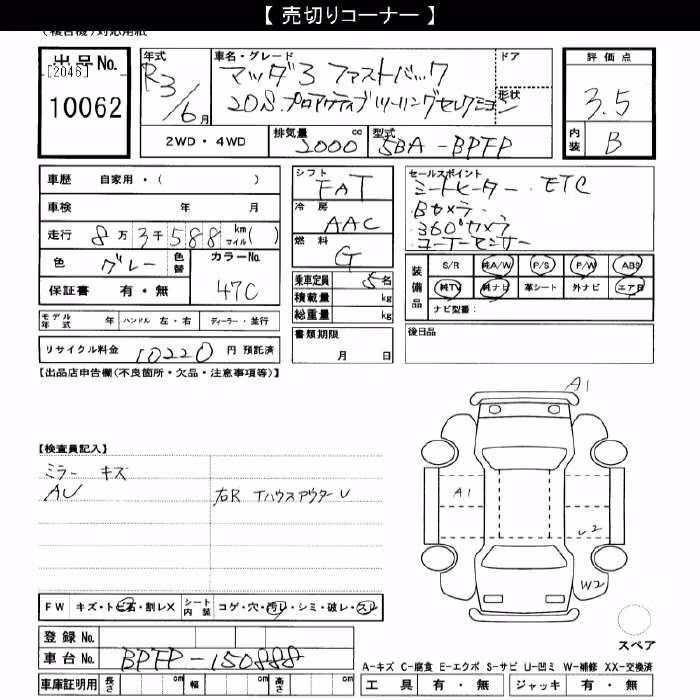 【 売切りコーナー 】
(複合機)対応用紙
出品No.
[2046]
10062
年式
R3/6月
車名・グレード
マツダ3 ファストバック
20S.プロアクティブツーリングセレクション
ドア
形状
評価点
3.5
内装
B
2WD・4WD
排気量 2000 cc
型式 5BA-BPFP
車歴 自家用・( )
車検 年 月
走行 8万3千588 km マイル( )
色 グレー 色替
カラーNo. 47C
保証書 有・無
シフト FAT
冷房 AAC
燃料 G
乗車定員 5名
積載量 kg
総重量 kg
セールスポイント
シートヒーター. ETC
Bカメラ.
360°カメラ
コーナーセンサー
装備品
S/R 純A/W P/S P/W ABS
純TV 純ナビ 革シート 外ナビ エアB
ナビ型番:
モデル年式 年 ハンドル 左・右 ディーラー・並行
リサイクル料金 10220 円 預託済
書類期限
月 日
後日品
【出品店申告欄(不良箇所・欠品・注意事項等)】
【検査員記入】
ミラー キズ
AU
右R Tハウスアウター U
A1
A1
U2
W2
スペア
FW キズ・トビ石・割レX
シート内装 コゲ・穴・汚レ・シミ・破レ・スレ
登録No.
車台No. BPFP-150888
車庫証明用 長さ cm 幅 cm 高さ cm
A-キズ C-腐食 E-エクボ S-サビ U-凹ミ W-補修 XX-交換済
工具 有・無 ジャッキ 有・無